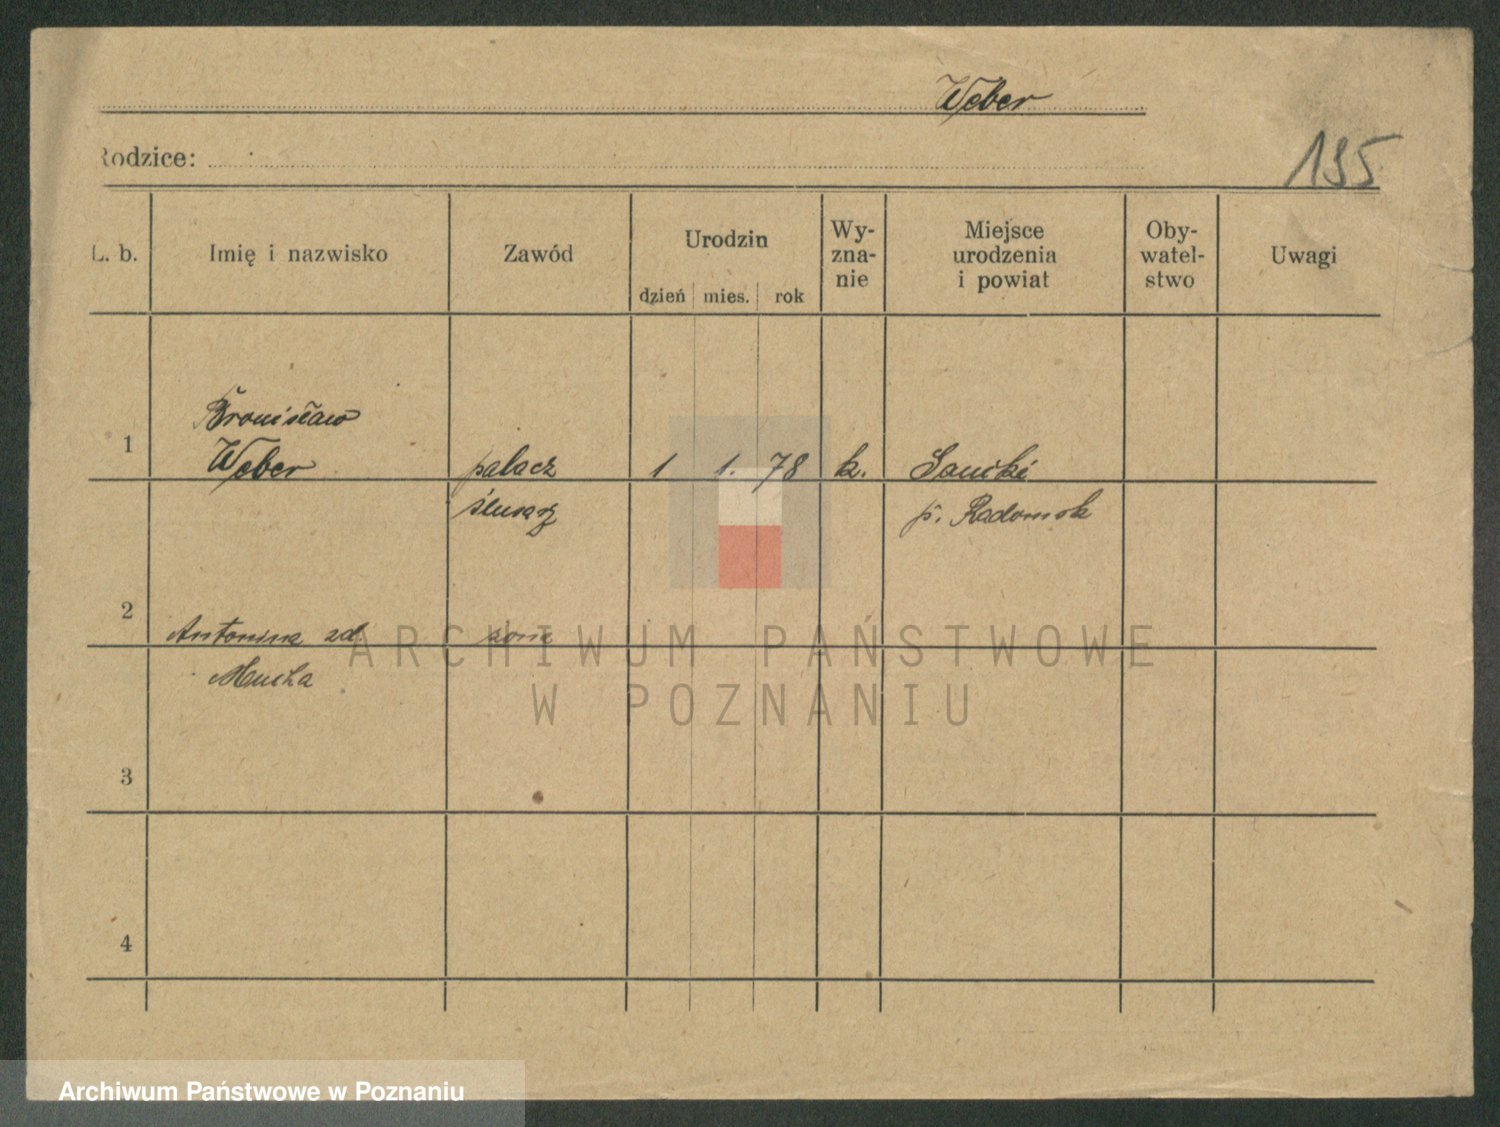 Weber
Rodzice:
195
L. b.
Imię i nazwisko
Zawód
Urodzin
dzień mies. rok
Wy-
zna-
nie
Miejsce
urodzenia
i powiat
Oby-
watel-
stwo
Uwagi
Bronisław
1 Weber palacz 1 1. 78 k. Sanicki
ślusarz p. Radomsk
2 Antonina zd. żona
Mucha
3
4
ARCHIWUM PAŃSTWOWE
W POZNANIU
Archiwum Państwowe w Poznaniu